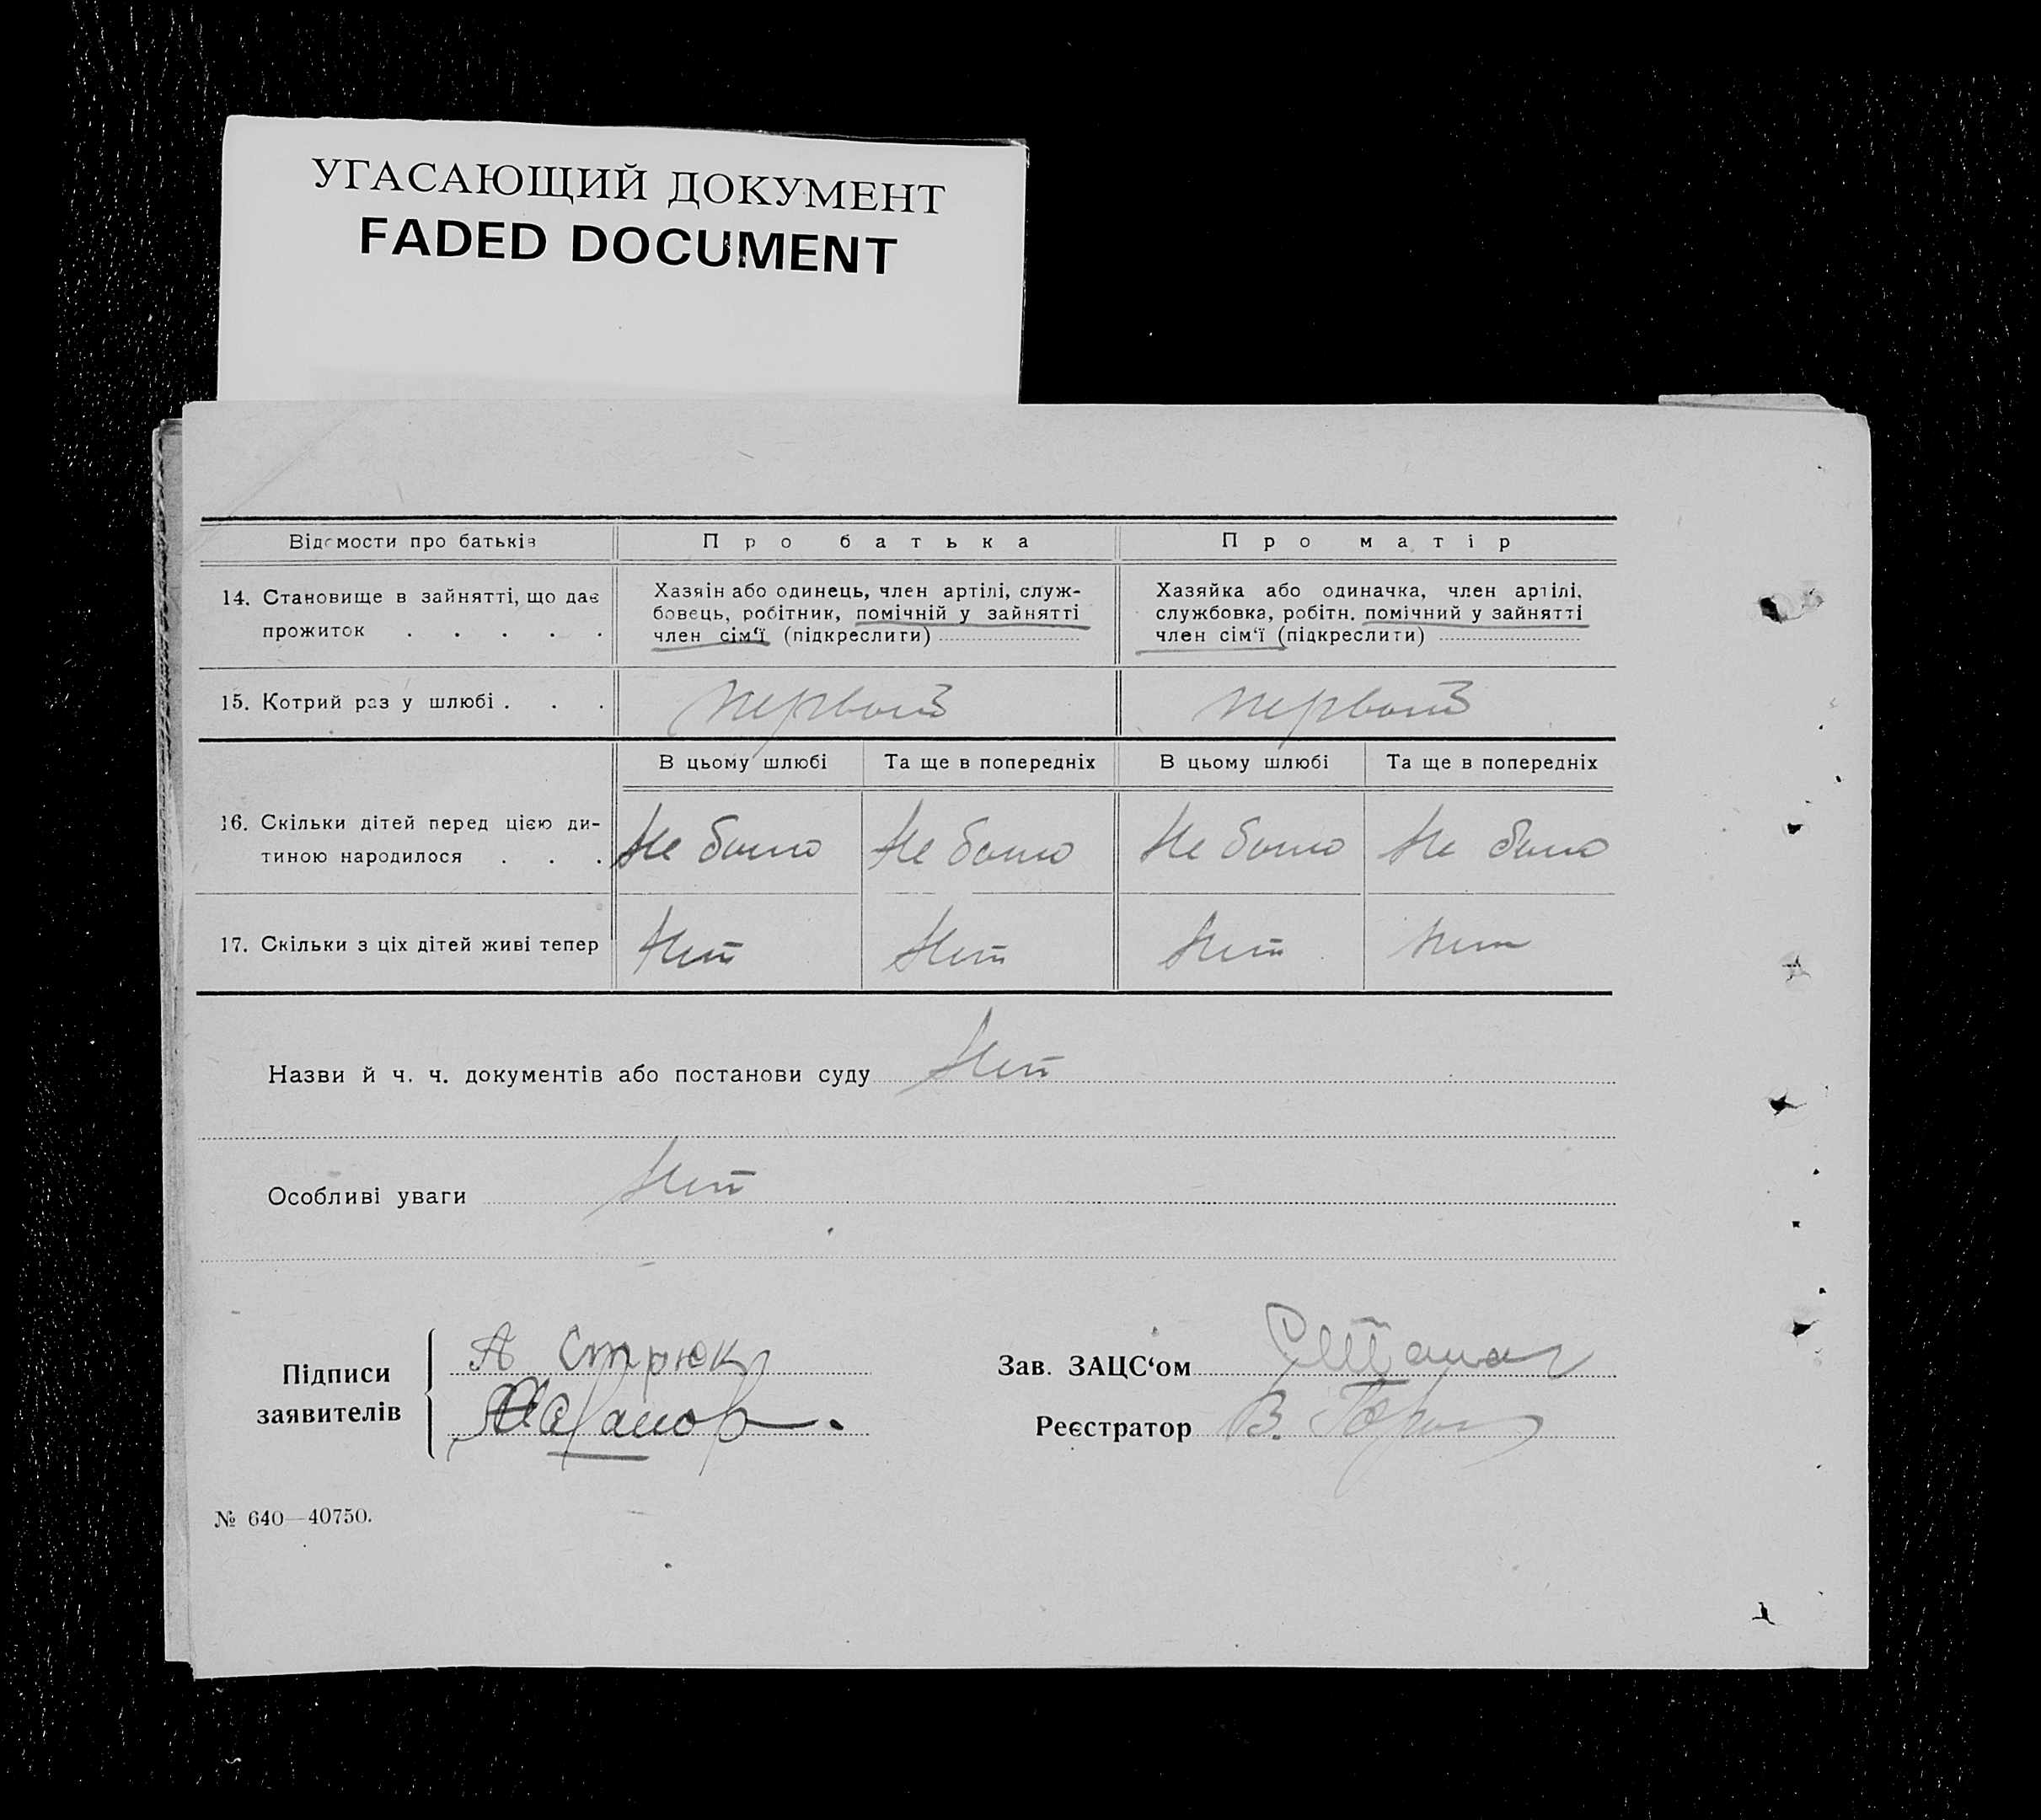 УГАСАЮЩИЙ ДОКУМЕНТ
FADED DOCUMENT
Відомости про батьків
Про батька
Про матір
14. Становище в зайнятті, що дає
прожиток . . . . .
Хазяін або одинець, член артілі, служ-
бовець, робітник, помічній у зайнятті
член сім‘ї (підкреслити)
Хазяйка або одиначка, член артілі,
службовка, робітн. помічний у зайнятті
член сім‘ї (підкреслити)
15. Котрий раз у шлюбі . . .
первый
первый
В цьому шлюбі
Та ще в попередніх
В цьому шлюбі
Та ще в попередніх
16. Скільки дітей перед цією ди-
тиною народилося . . .
Не было
Не было
Не было
Не было
17. Скільки з ціх дітей живі тепер
Нет
Нет
Нет
Нет
Назви й ч. ч. документів або постанови суду Нет
Особливі уваги Нет
Підписи
заявителів
А Стрюк
Зав. ЗАЦС‘ом
Реєстратор В.
№ 640—40750.